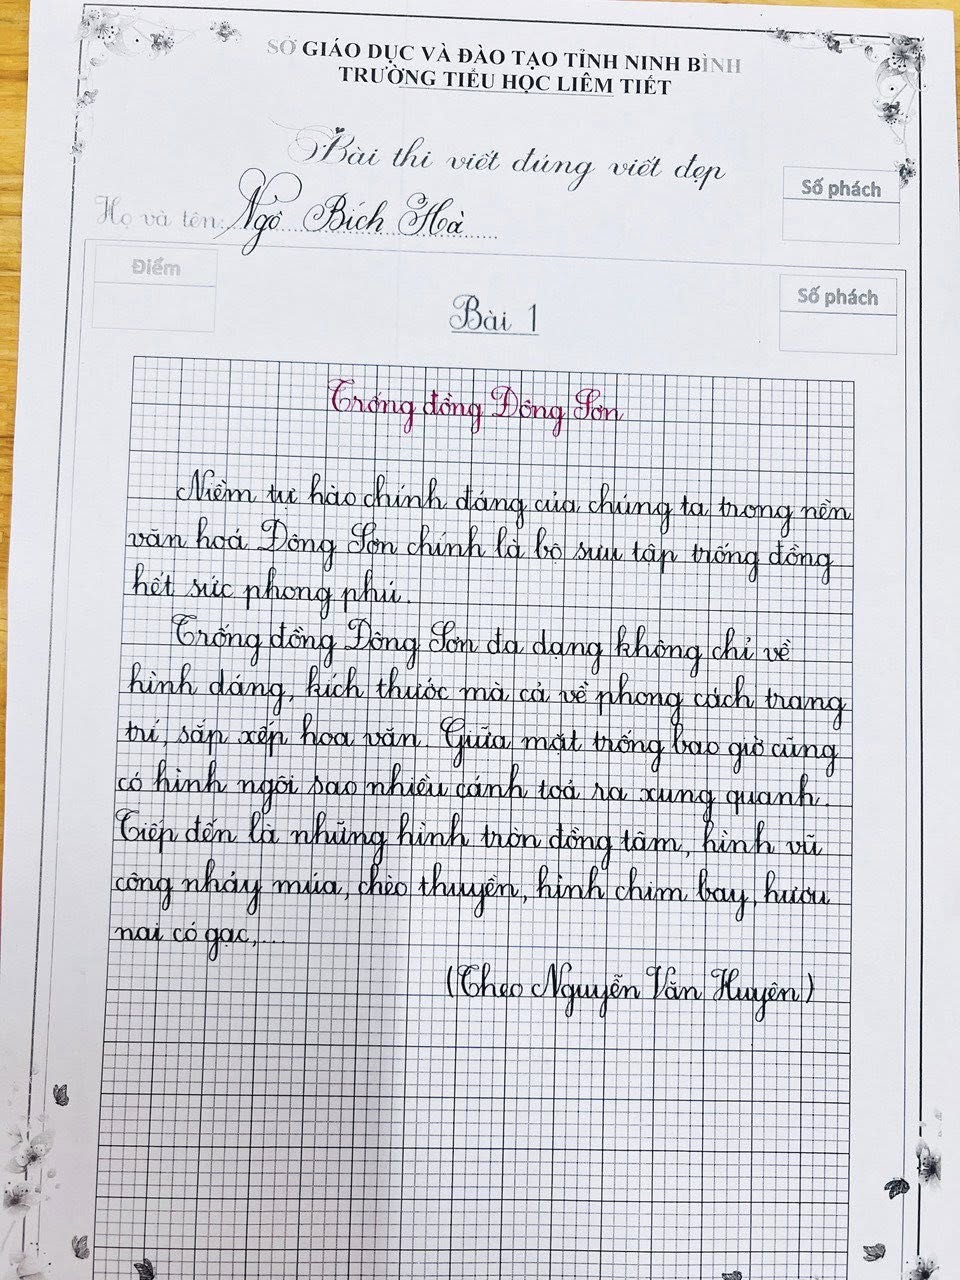 SỞ GIÁO DỤC VÀ ĐÀO TẠO TỈNH NINH BÌNH
TRƯỜNG TIỂU HỌC LIÊM TIẾT
Bài thi viết đúng viết đẹp
Số phách
Họ và tên: Ngô Bích Hà
Điểm
Số phách
Bài 1
Trống đồng Đông Sơn
Niềm tự hào chính đáng của chúng ta trong nền
văn hoá Đông Sơn chính là bộ sưu tập trống đồng
hết sức phong phú.
Trống đồng Đông Sơn đa dạng không chỉ về
hình dáng, kích thước mà cả về phong cách trang
trí, sắp xếp hoa văn. Giữa mặt trống bao giờ cũng
có hình ngôi sao nhiều cánh toả ra xung quanh.
Tiếp đến là những hình tròn đồng tâm, hình vũ
công nhảy múa, chèo thuyền, hình chim bay, hươu
nai có gạc,...
(Theo Nguyễn Văn Huyên)